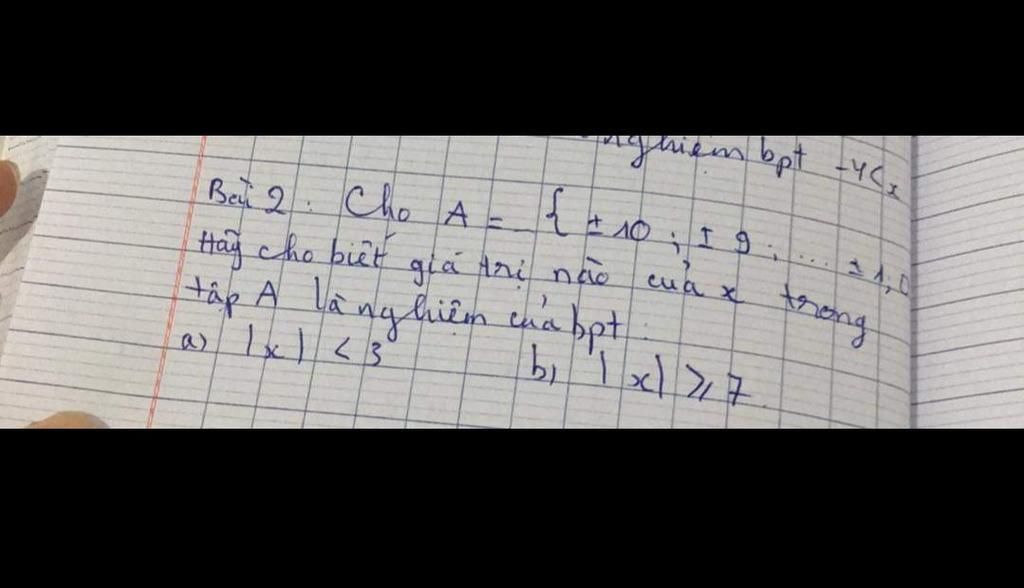 nghiệm bpt -4<x
Bài 2: Cho A = { ±10 ; ± 9 ; ... ±1; 0
Hãy cho biết giá trị nào của x trong
tập A là nghiệm của bpt.
a) |x| < 3 b) |x| ⩾ 7.